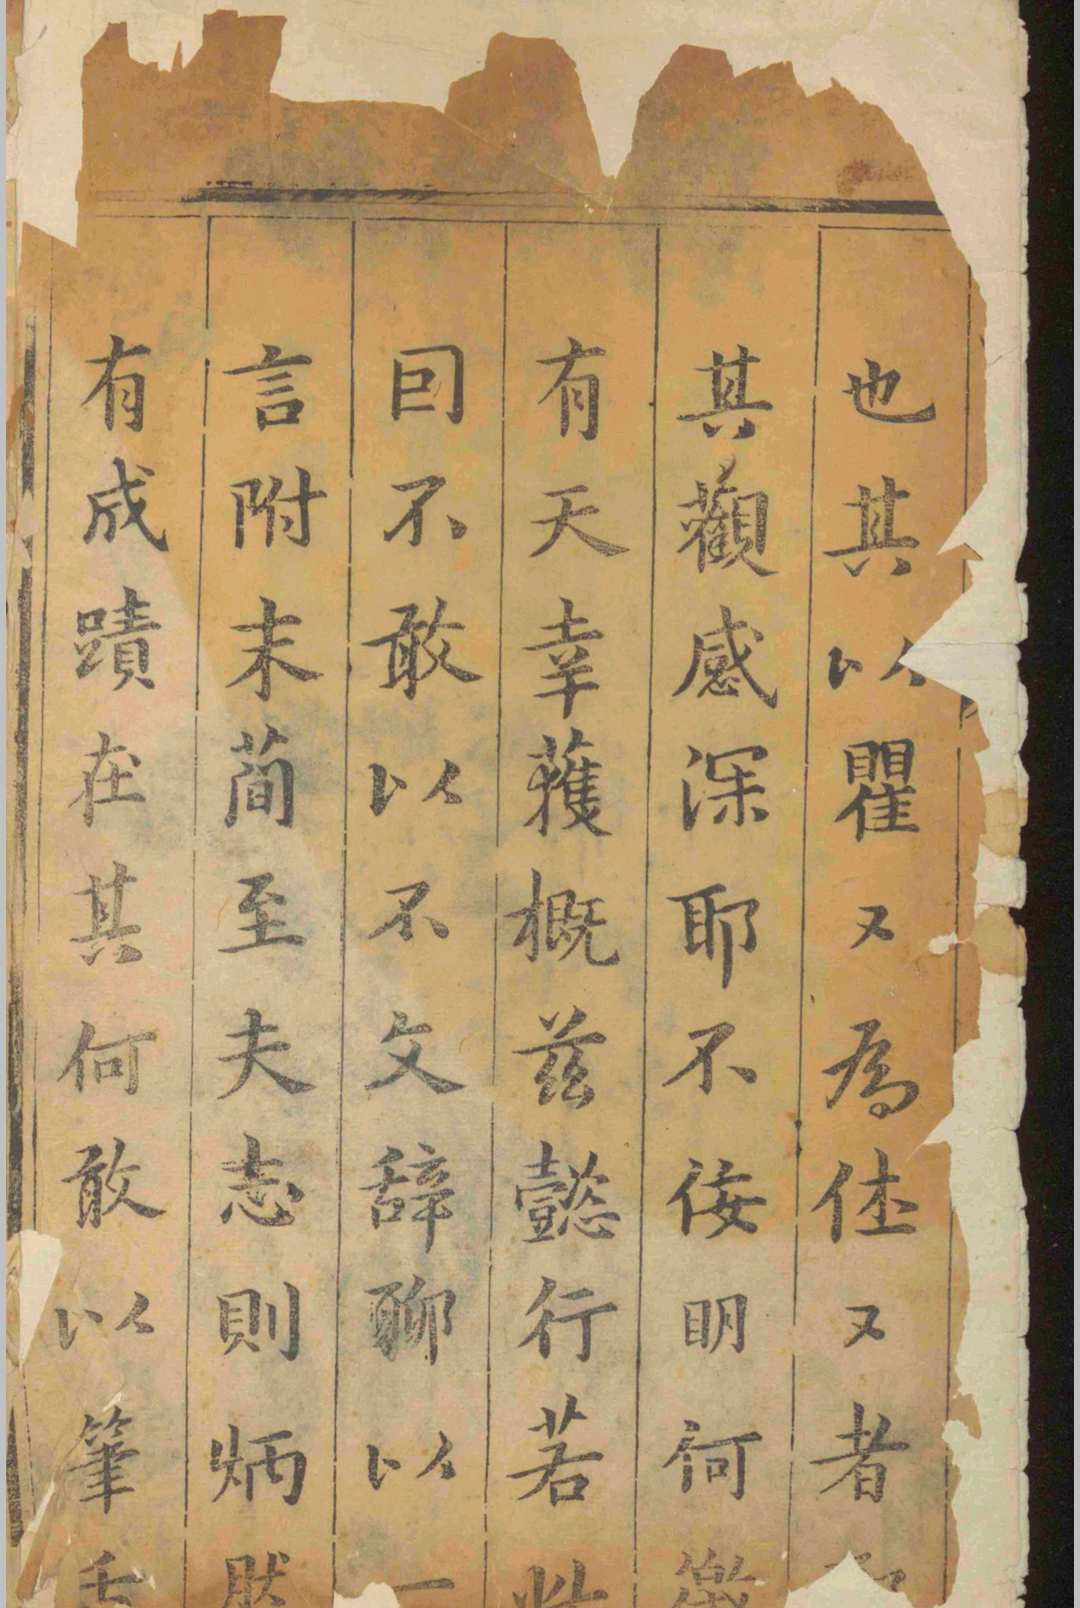 也其以瞿又為休又者
其觀感深耶不佞明何
有天幸獲概茲懿行若
囙不敢以不文辭聊以一
言附末簡至夫志則炳然
有成蹟在其何敢以筆舌